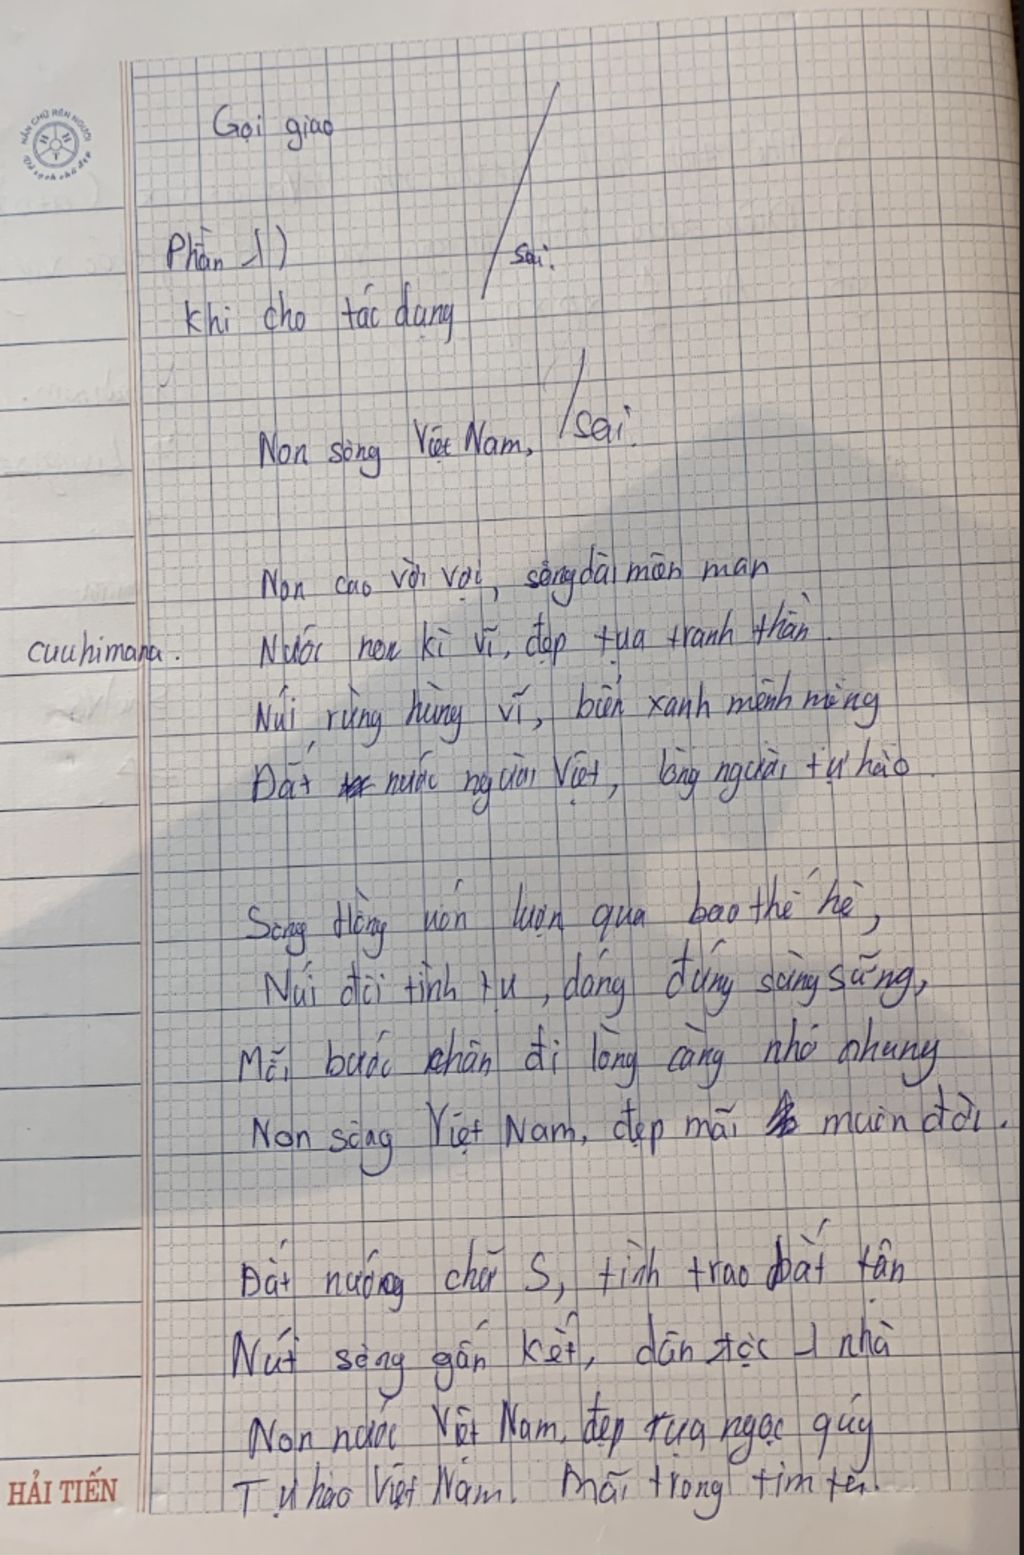 NẮN CHỮ RÈN NGƯỜI
Gọi giao
Phần 1)
sai.
Khi cho tác dụng
Non sông Việt Nam, sai.
Non cao vời vợi, sông dài mơn man
cuuhimana.
Nước non kì vĩ, đẹp tựa tranh thần.
Núi rừng hùng vĩ, biển xanh mênh mông
Đất nước người Việt, lòng người tự hào.
Sông Hồng uốn lượn qua bao thế hệ,
Núi đồi tình tự, dáng đứng sừng sững,
Mỗi bước chân đi lòng càng nhớ nhung
Non sông Việt Nam, đẹp mãi muôn đời.
Đất nước chữ S, tình trao bất tận
Nút sông gắn kết, dân tộc 1 nhà
Non nước Việt Nam, đẹp tựa ngọc quý
Tự hào Việt Nam. Mãi trong tim
HẢI TIẾN